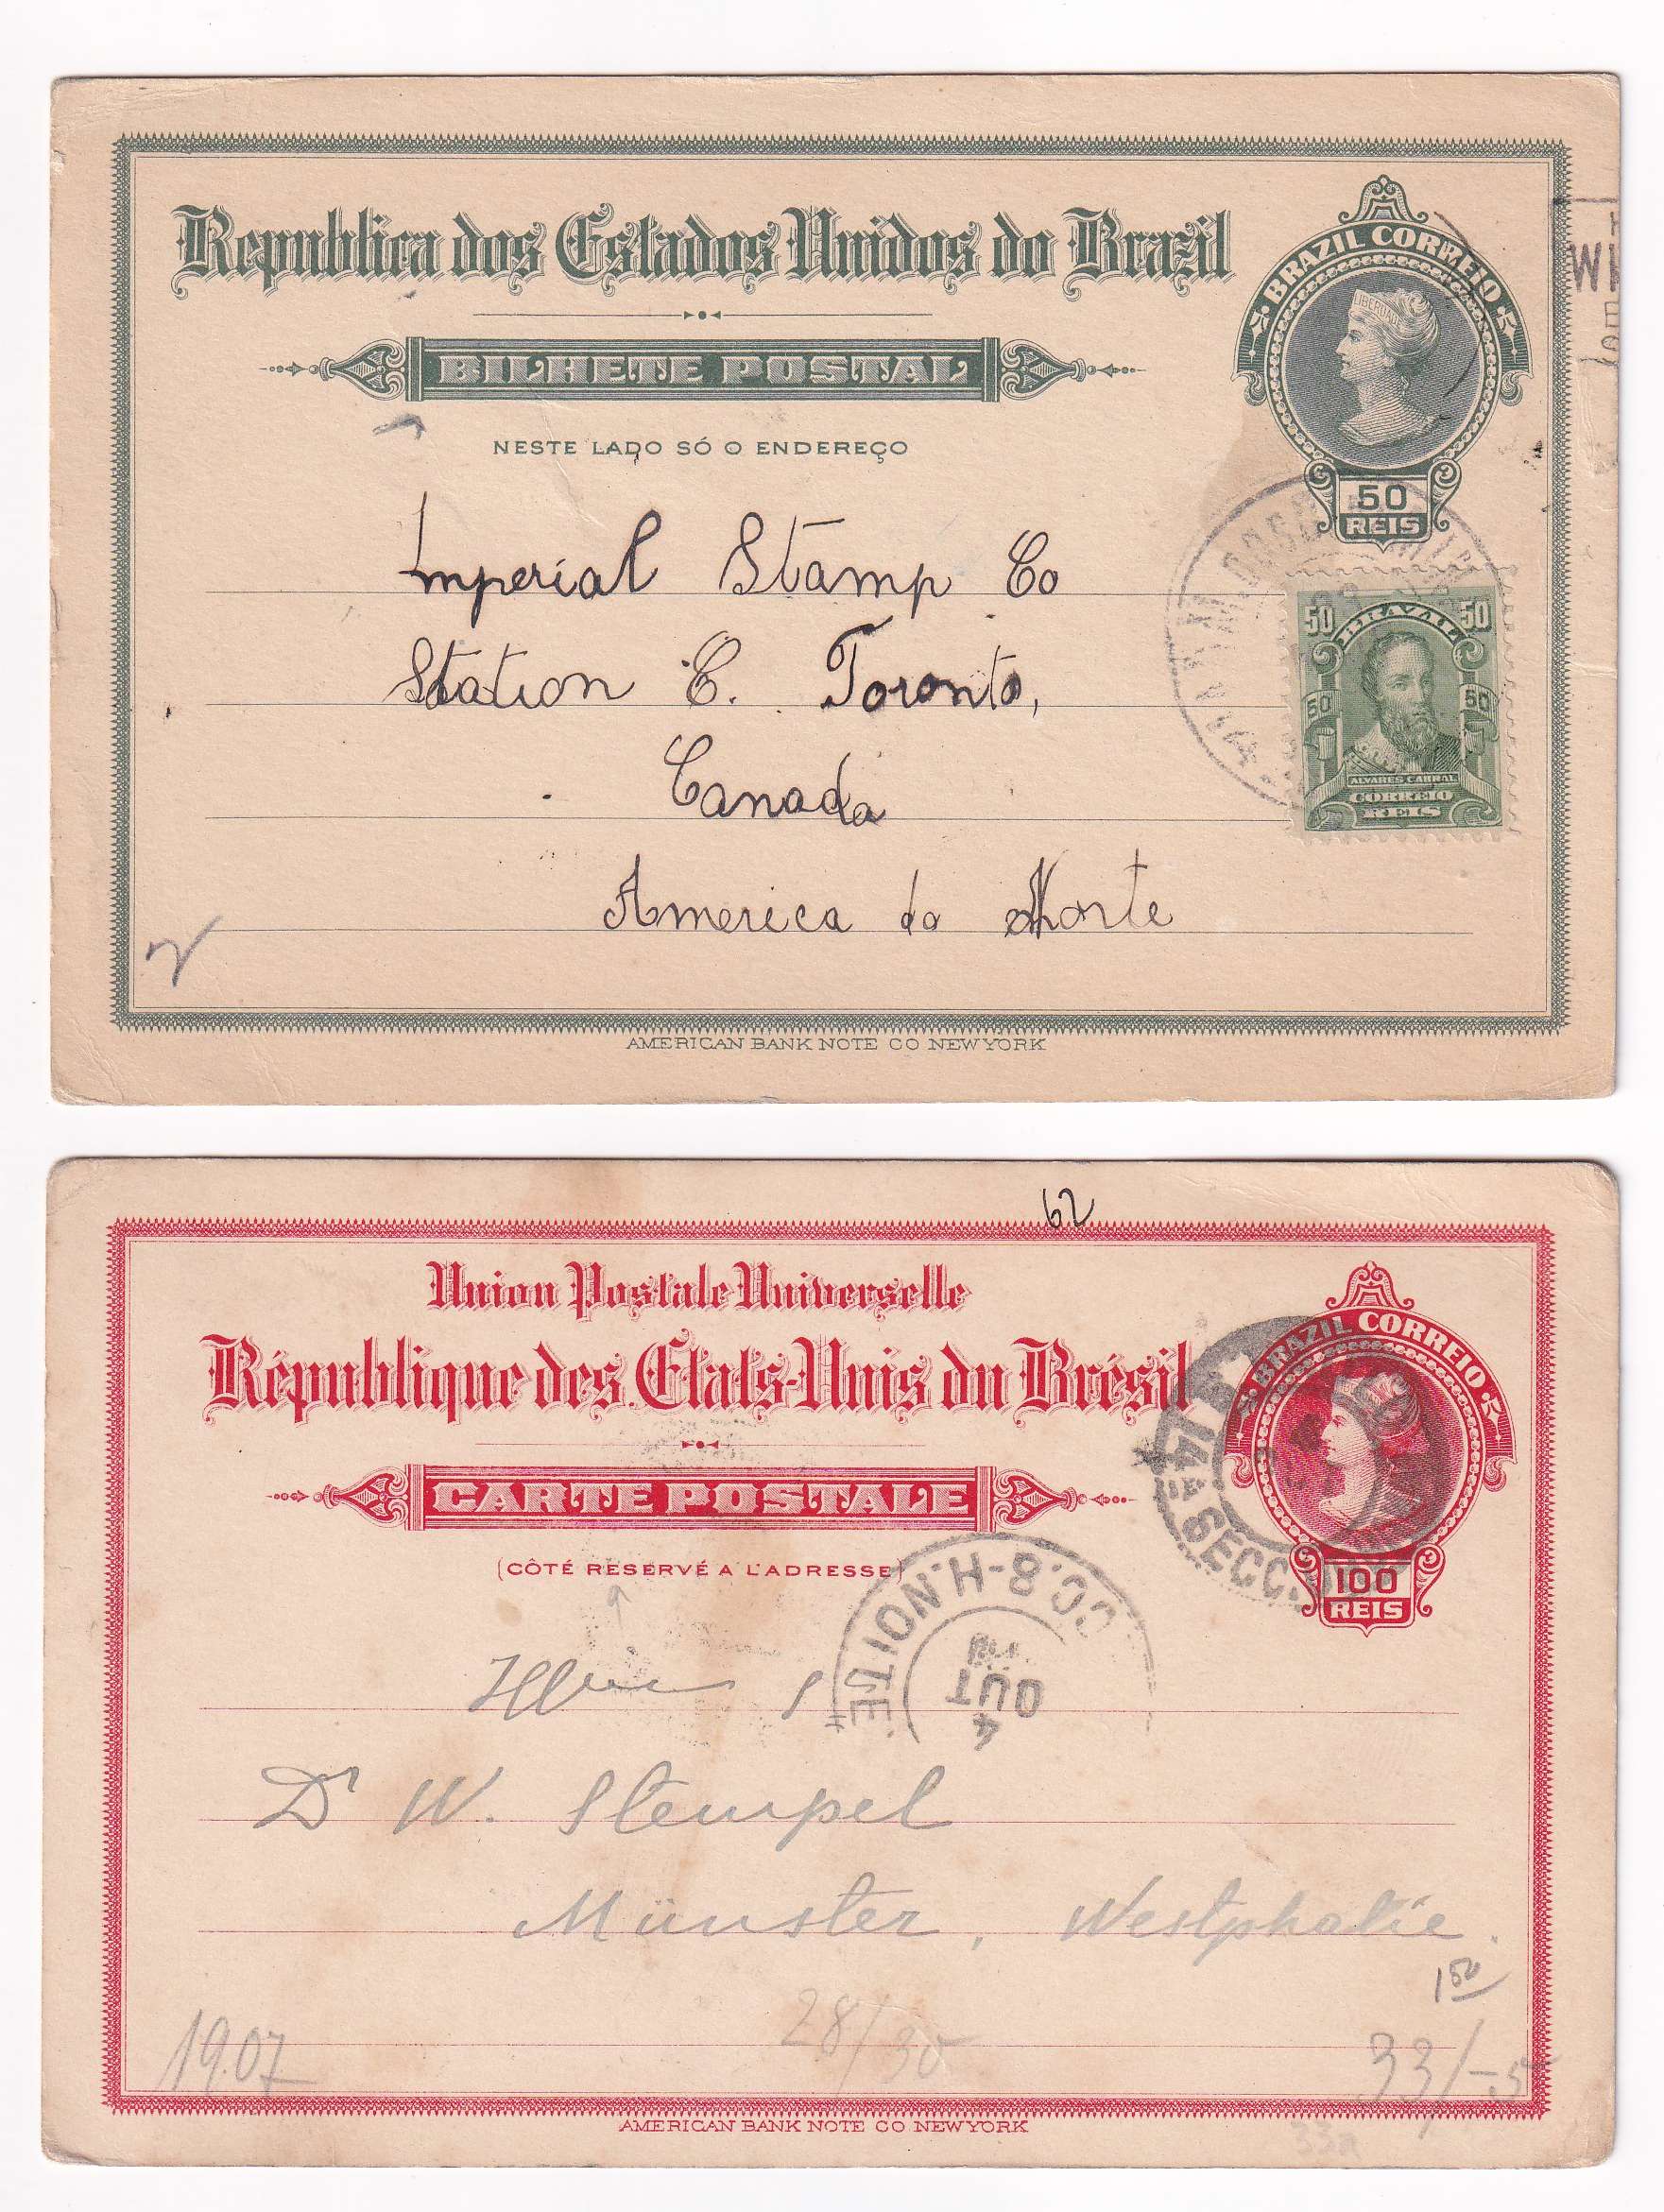 Republica dos Estados Unidos do Brazil
BRAZIL CORREIO
LIBERDADE
BILHETE POSTAL
NESTE LADO SÓ O ENDEREÇO
50
REIS
Imperial Stamp Co
Station C. Toronto,
Canada
America do Norte
50 BRAZIL 50
50 50
ALVARES CABRAL
CORREIO
REIS
AMERICAN BANK NOTE CO NEW YORK
62
Union Postale Universelle
République des États-Unis du Brésil
BRAZIL CORREIO
CARTE POSTALE
(CÔTÉ RESERVÉ A L'ADRESSE)
100
REIS
14 6 SECC.
4
OUT
Dr W. Stempel
Münster, Westphalie.
1 50
1907
28/30
33/-
33a
AMERICAN BANK NOTE CO NEW YORK